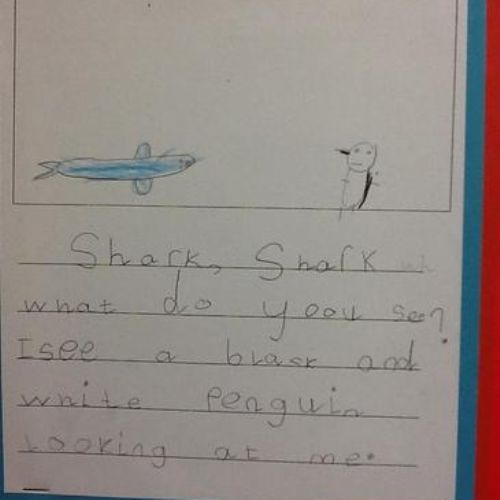 Shark, Shark wh
what do yoou see?
I see a black and
white Penguin
Looking at me.